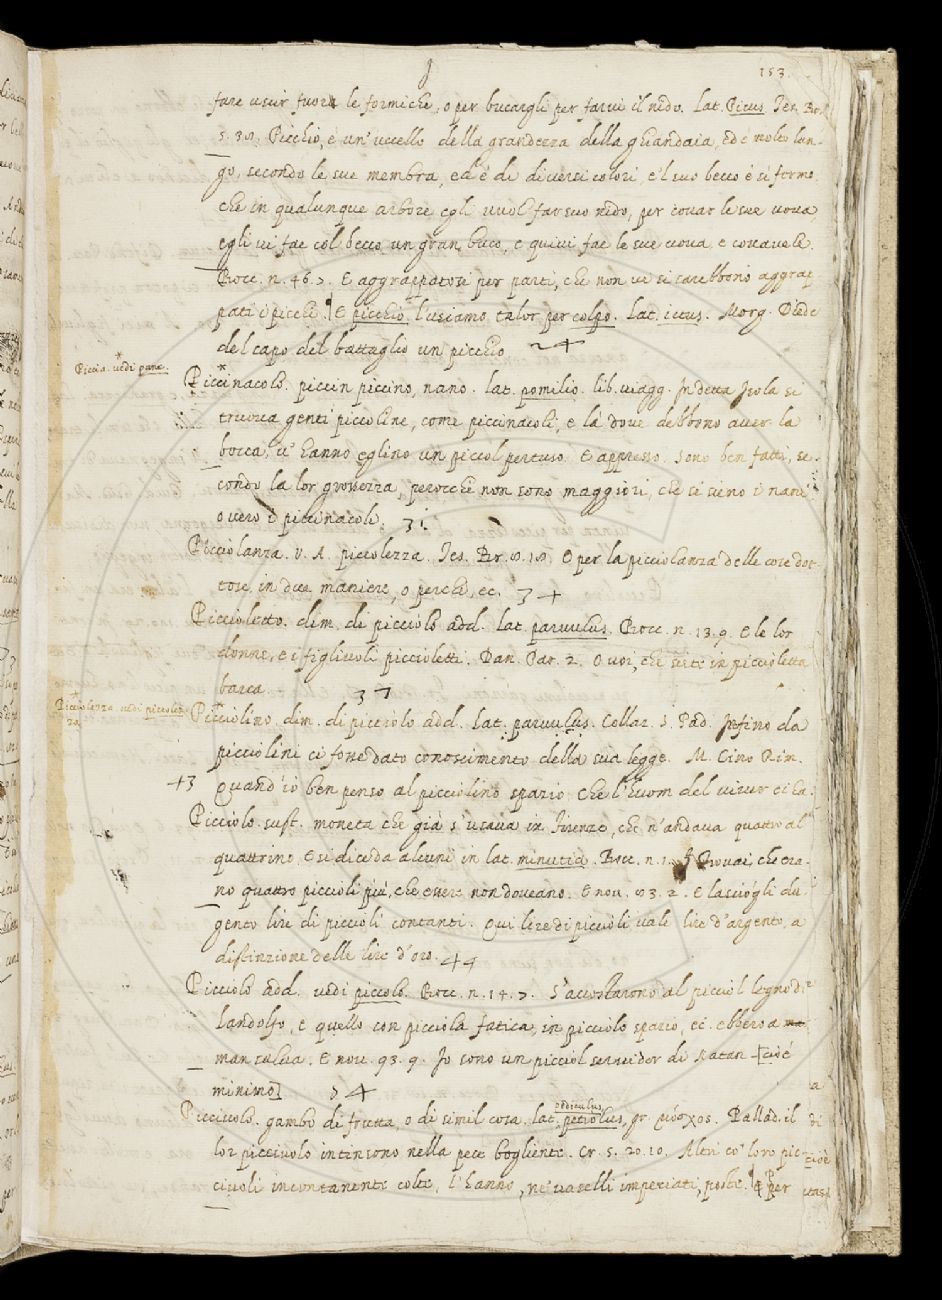 153.
fare uscir fuora le formiche, o per bucargli per farui il nido. Lat. Picus. Tes. Br.
5. 30. Picchio, è un' uccello della grandezza della ghiandaia, ed è molto lun-
go, secondo le sue membra, ed è di diuersi colori e 'l suo becco è sì forte,
che in qualunque arbore egli uuol far suo nido, per couar le sue uoua,
egli ui fae col becco un gran buco, e quiui fae le sue uoua, e couauele.
Bocc. n. 46. 7. E aggrappatosi per parti, che non ui si sarebbono aggrap
pati i picchi. E picchio l'usiamo talor per colpo. Lat. ictus. Morg. Diede
del capo del battaglio un picchio 24
Piccia. uedi pane.
Piccinacolo. piccin piccino, nano. Lat. pomilio. lib. uiagg. In detta Isola si
truoua genti piccoline, come piccinacoli, e là doue debbono auer la
bocca, u' hanno eglino un piccol pertuso. E appresso. Sono ben fatti, se-
condo la lor grossezza, perocchè non sono maggiori, che si sieno i nani
ouero i piccinacoli. 31
Picciolanza. V. A. picciolezza. Tes. Br. 8. 18. O per la picciolanza delle cose dot-
tose, in due maniere, o perchè, ec. 34
Piccioletto. dim. di picciolo add. Lat. paruulus. Bocc. n. 13. 9. E le lor
donne, e i figliuoli piccioletti. Dan. Par. 2. O uoi, che siete in piccioletta
barca. 37
Picciolezza. uedi piccolez-
za
Picciolino. dim. di picciolo add. Lat. paruulus. Collaz. S. Pad. Infino da
picciolini ci fosse dato conoscimento della sua legge. M. Cino Rim.
43 Quand' io ben penso al picciolino spazio Che l' huom del uiuer ci ha.
Picciolo sust. moneta che già s' usaua in Firenze, che n' andaua quattro al
quattrino, E si diceua alcuni in lat. minutia. Bocc. n. 1. Trouai, ch' era-
no quattro piccioli più, che essere non doueano. E nou. 83. 2. E lasciògli du-
gento lire di piccioli contanti. Qui lire di piccioli uale lire d' argento, a
distinzione delle lire d' oro. 44
Picciolo add. uedi piccolo. Bocc. n. 14. 7. S' accostarono al picciol legno di
Landolfo, e quello con picciola fatica, in picciolo spazio, ec. ebbero a
man salua. E nou. 93. 9. Io sono un picciol seruidor di Natan [cioè
minimo] 54
Picciuolo. gambo di frutta, o di simil cosa. Lat. petiolus, gr. μόσχος. Pallad. il
pediculus
lor picciuolo intinsono nella pece bogliente. Cr. 5. 20. 10. Altri co' loro pic-
ciuoli incontanente colte, l' hanno, ne' uaselli impeciati, poste. Per